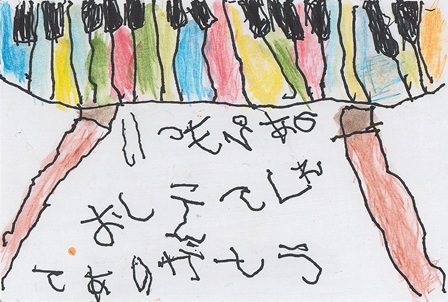 いつもぴあの
おしえてくれ
てありがとう